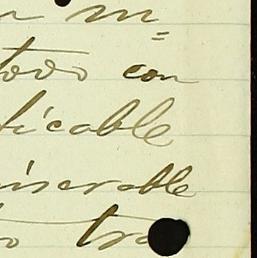 m=
todo con
ticable
miserable
tra